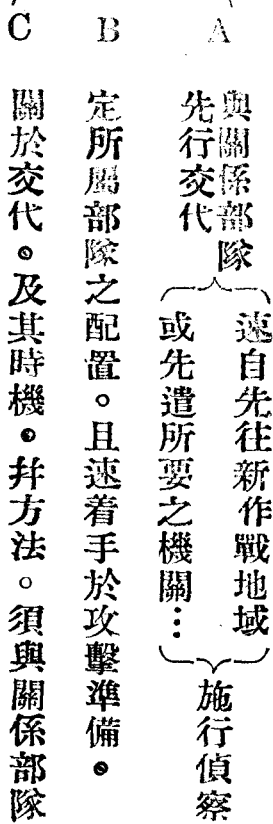 A
與關係部隊
先行交代
速自先往新作戰地域
或先遣所要之機關…
施行偵察
B 定所屬部隊之配置。且速着手於攻擊準備。
C 關於交代。及其時機。幷方法。須與關係部隊